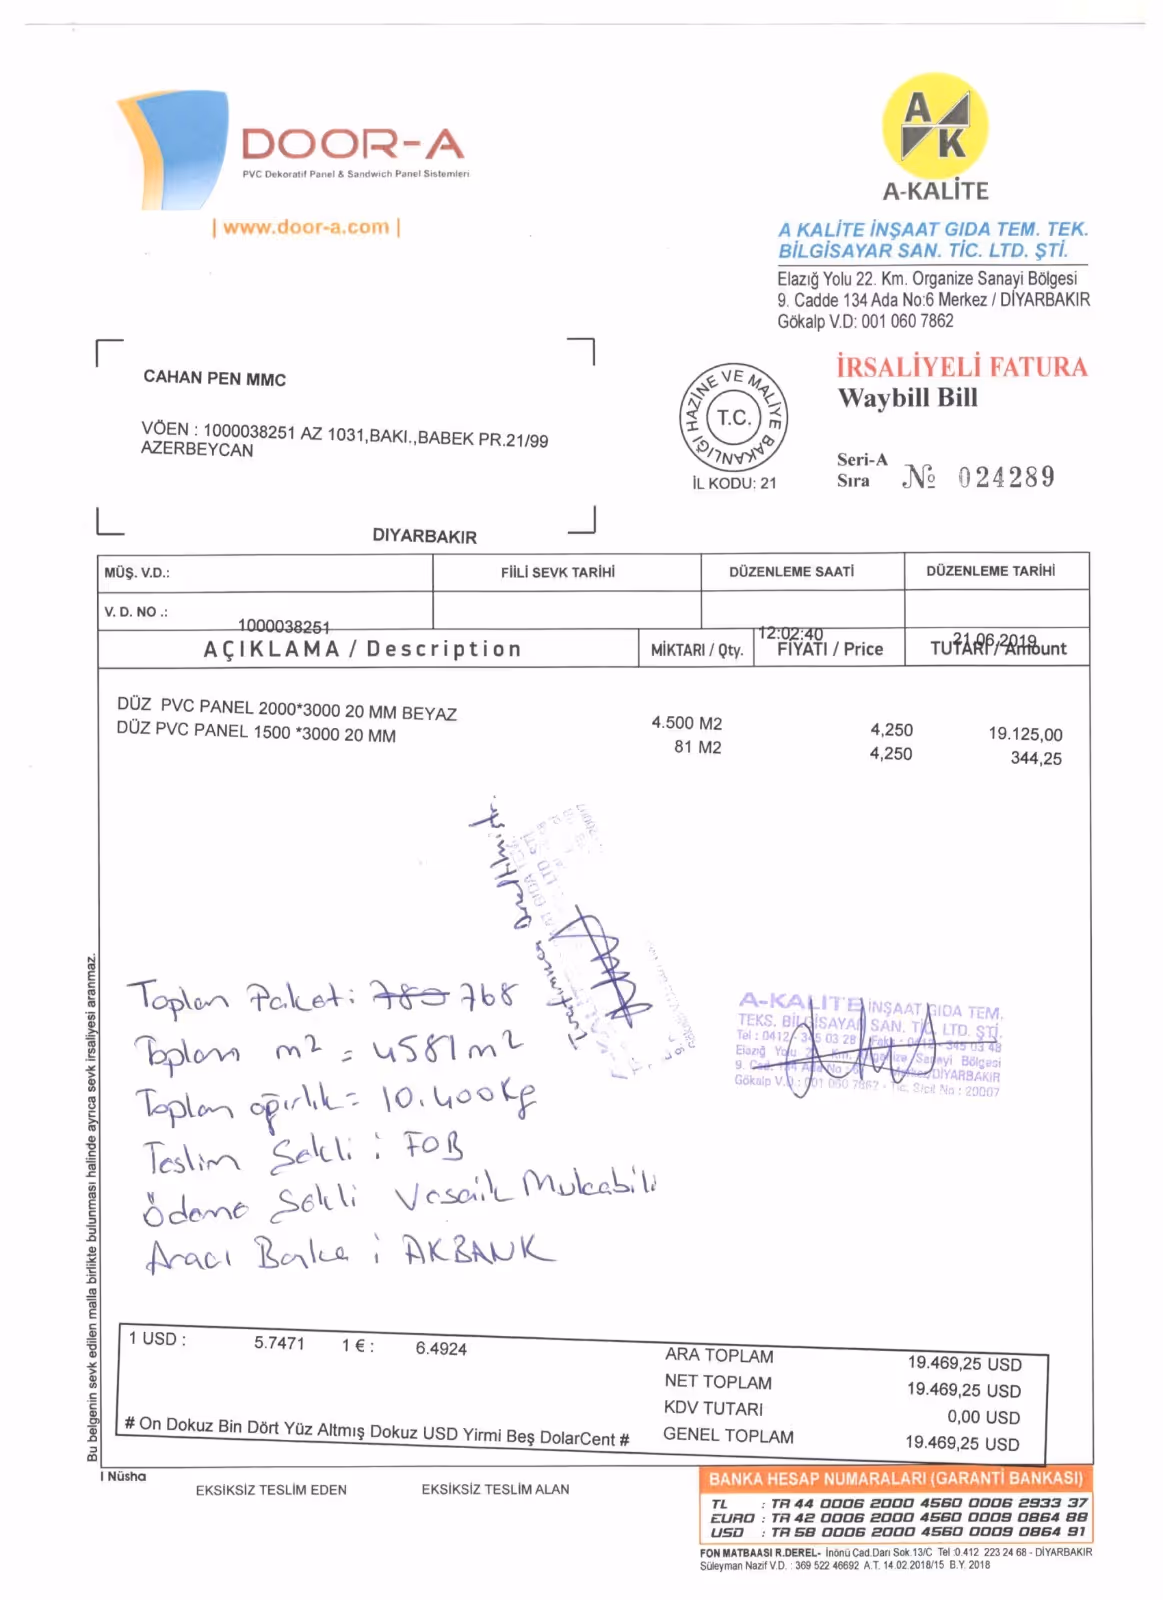 DOOR-A
PVC Dekoratif Panel & Sandwich Panel Sistemleri
| www.door-a.com |
A K
A-KALİTE
A KALİTE İNŞAAT GIDA TEM. TEK.
BİLGİSAYAR SAN. TİC. LTD. ŞTİ.
Elazığ Yolu 22. Km. Organize Sanayi Bölgesi
9. Cadde 134 Ada No:6 Merkez / DİYARBAKIR
Gökalp V.D: 001 060 7862
CAHAN PEN MMC
VÖEN : 1000038251 AZ 1031,BAKI.,BABEK PR.21/99
AZERBEYCAN
DIYARBAKIR
T.C.
HAZİNE VE MALİYE BAKANLIĞI
İL KODU: 21
İRSALİYELİ FATURA
Waybill Bill
Seri-A
Sıra № 024289
MÜŞ. V.D.: FİİLİ SEVK TARİHİ DÜZENLEME SAATİ DÜZENLEME TARİHİ
V. D. NO .: 1000038251 12:02:40 21.06.2019
AÇIKLAMA / Description MİKTARI / Qty. FİYATI / Price TUTARI / Amount
DÜZ PVC PANEL 2000*3000 20 MM BEYAZ 4.500 M2 4,250 19.125,00
DÜZ PVC PANEL 1500 *3000 20 MM 81 M2 4,250 344,25
Toplam Paket: 768
Toplam m2 = 4581 m2
Toplam ağırlık = 10.400 Kg
Teslim Şekli : FOB
Ödeme Şekli Vesaik Mukabili
Aracı Banka : AKBANK
A-KALITE İNŞAAT GIDA TEM.
TEKS. BİLGİSAYAR SAN. TİC. LTD. ŞTİ.
Tel : 0412 - 345 03 28 Faks : 0412 - 345 03 48
Elazığ Yolu Km. Organize Sanayi Bölgesi
9. Cad. Ada No Merkez/DİYARBAKIR
Gökalp V.D.: 001 060 7862 - Tic. Sicil No : 20007
Bu belgenin sevk edilen malla birlikte bulunması halinde ayrıca sevk irsaliyesi aranmaz.
1 USD : 5.7471 1 € : 6.4924
ARA TOPLAM 19.469,25 USD
NET TOPLAM 19.469,25 USD
KDV TUTARI 0,00 USD
GENEL TOPLAM 19.469,25 USD
# On Dokuz Bin Dört Yüz Altmış Dokuz USD Yirmi Beş DolarCent #
I Nüsha
EKSİKSİZ TESLİM EDEN EKSİKSİZ TESLİM ALAN
BANKA HESAP NUMARALARI (GARANTİ BANKASI)
TL : TR 44 0006 2000 4560 0006 2933 37
EURO : TR 42 0006 2000 4560 0009 0864 88
USD : TR 58 0006 2000 4560 0009 0864 91
FON MATBAASI R.DEREL- İnönü Cad.Darı Sok.13/C Tel :0.412 223 24 68 - DİYARBAKIR
Süleyman Nazif V.D. : 369 522 46692 A.T. 14.02.2018/15 B.Y. 2018